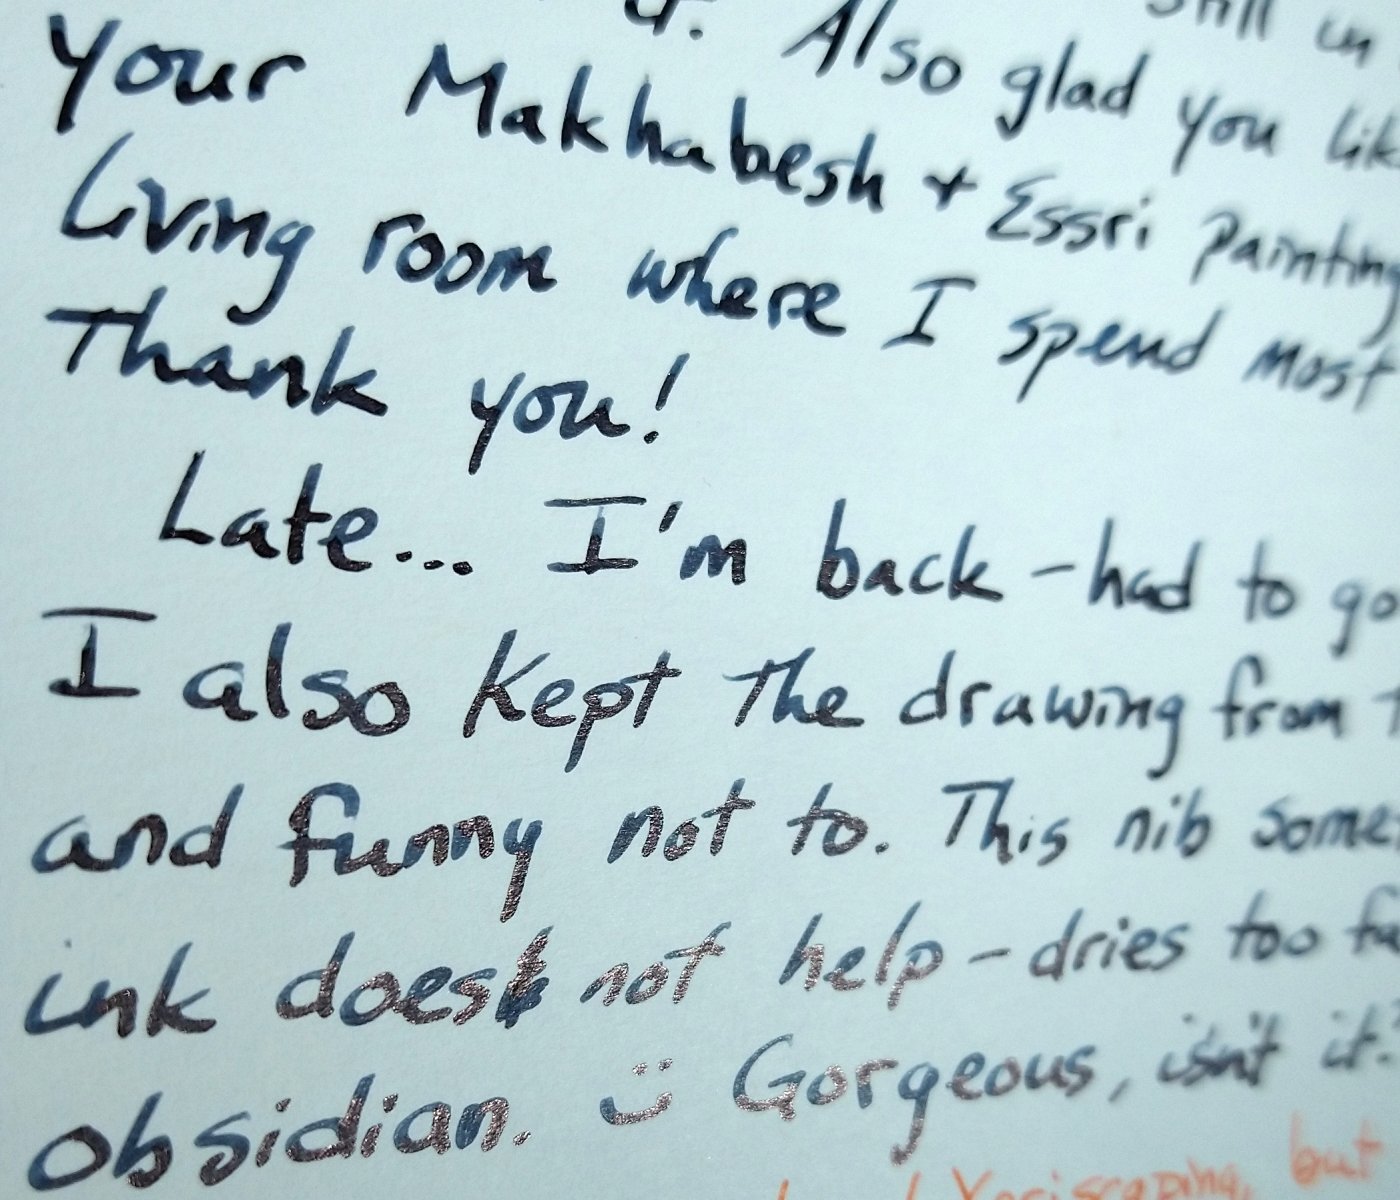 still in
it. Also glad you lik
your Makhabesh + Essri painting
Living room where I spend most
Thank you!
Late... I'm back - had to go
I also kept the drawing from
and funny not to. This nib some
ink does not help - dries too fa
obsidian. :) Gorgeous, isn't it?
Xeriscaping, but